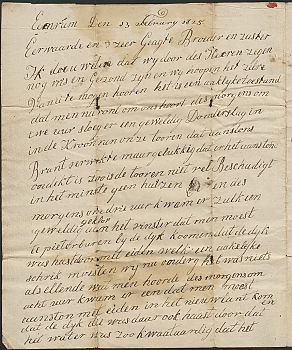 Eenrum Den 23 February 1825
Eerwaarde en zeer Geagte Broeder en zuster
Ik doe u weten dat wy door des Heeren zegen
nog vris en Gezond zyn en wy hoopen het zelve
van u te mogen hooren het is een aaklyke toestand
dat men nu ront om ons hoort des morgens om
twe uur sloeg er een geweldig Donderslag in
de Kroon van onze tooren dat aanstons
Brant verwekte maar gelukkig dat er het aanstons
ontdekt is zoo is de tooren niet veel Beschadigt
in het minste geen huizen en des
morgens om drie uur kwam er zulk een
geweldig aan het vinster dat men moest
te pieterburen by de dyk koomen dat de dyk
was haast door met eiden welk een aakelyke
schrik moisten wy nu ondergaan was niets
als ellende wat men hoorde des morgens om
acht uur kwam er een dat men moest
aanstons met eiden in het nieuwlant kom en
dat de dyk dat was daar ook haast door dat
het water was zoo kwaadaardig dat het